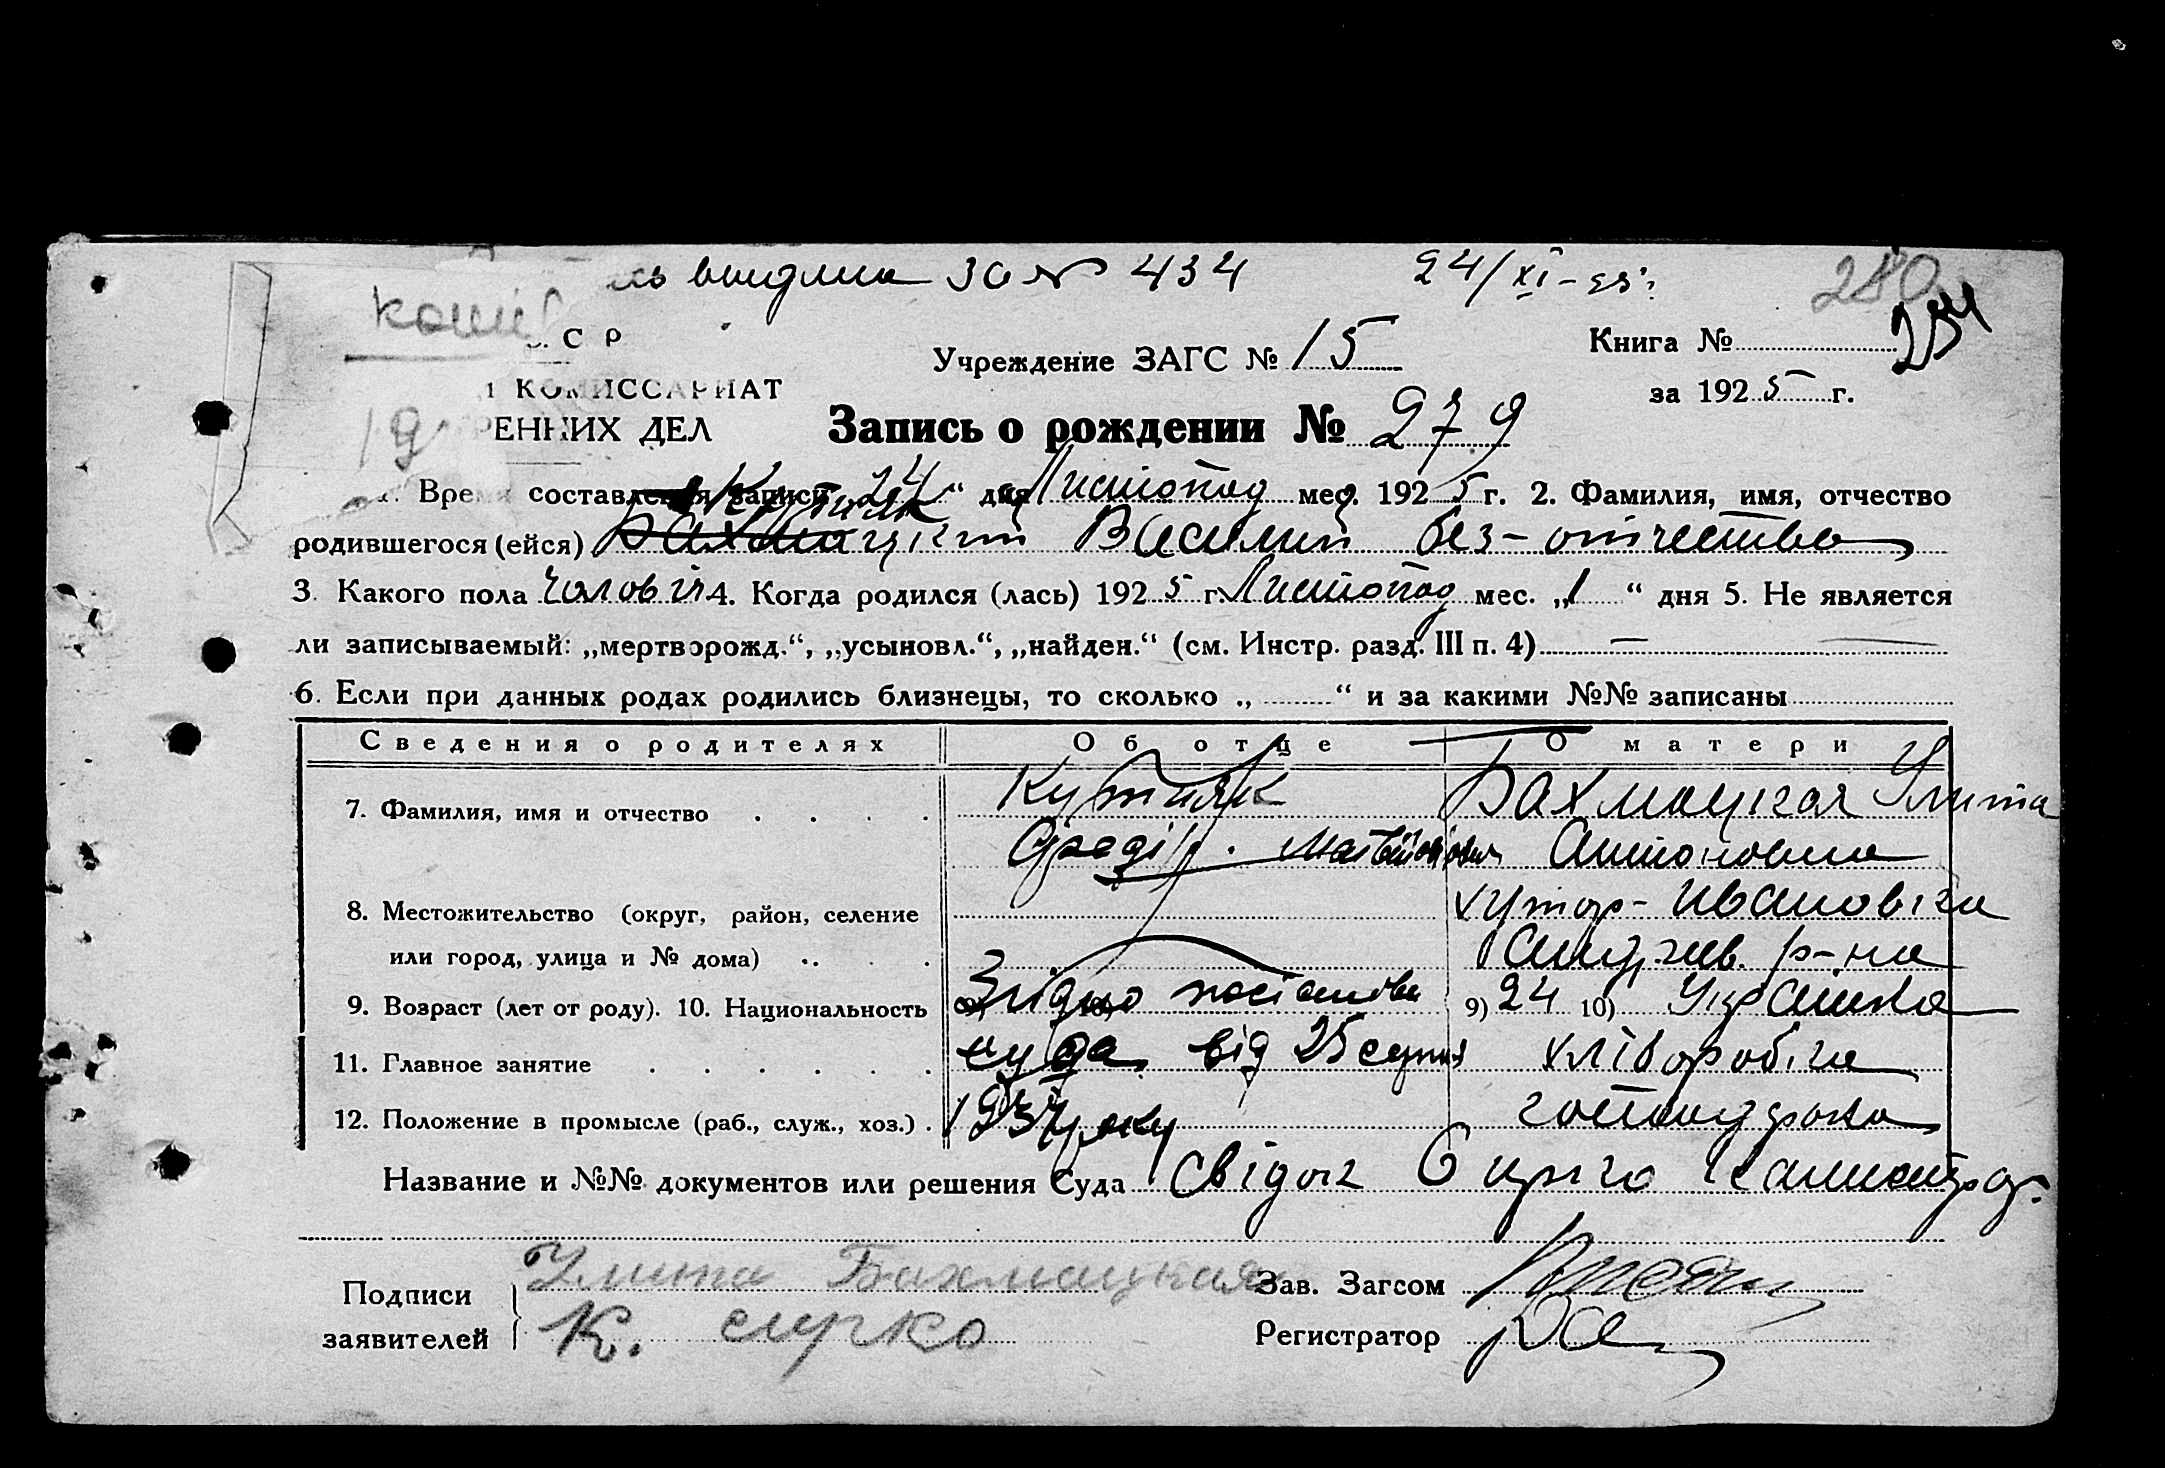 выдана за № 434 24/XI-25г. 280
копія С Р Учреждение ЗАГС № 15 Книга № 254
КОМИССАРИАТ за 1925 г.
19 РЕННИХ ДЕЛ Запись о рождении № 279
1. Время составления записи „24“ дня Листопад мес. 1925 г. 2. Фамилия, имя, отчество
Кутняк
родившегося (ейся) Бахмацкий Василий без-отчества
3. Какого пола чоловiч 4. Когда родился (лась) 1925 г. Листопад мес. „1“ дня 5. Не является
ли записываемый: „мертворожд.“, „усыновл.“, „найден.“ (см. Инстр. разд. III п. 4) —
6. Если при данных родах родились близнецы, то сколько „ “ и за какими №№ записаны
Сведения о родителях Об отце О матери
7. Фамилия, имя и отчество Кутняк Бахмацкая Улита
Матвійович Антоновна
8. Местожительство (округ, район, селение хутор-Ивановка
или город, улица и № дома) р-на
9. Возраст (лет от роду). 10. Национальность Згідно постанови 9) 24 10) Українка
11. Главное занятие суда від 25 серпня хліборобка
12. Положение в промысле (раб., служ., хоз.) 1937 року
Название и №№ документов или решения Суда Свідок Сирко
Подписи Улита Бахмацкая Зав. Загсом
заявителей К. сирко Регистратор